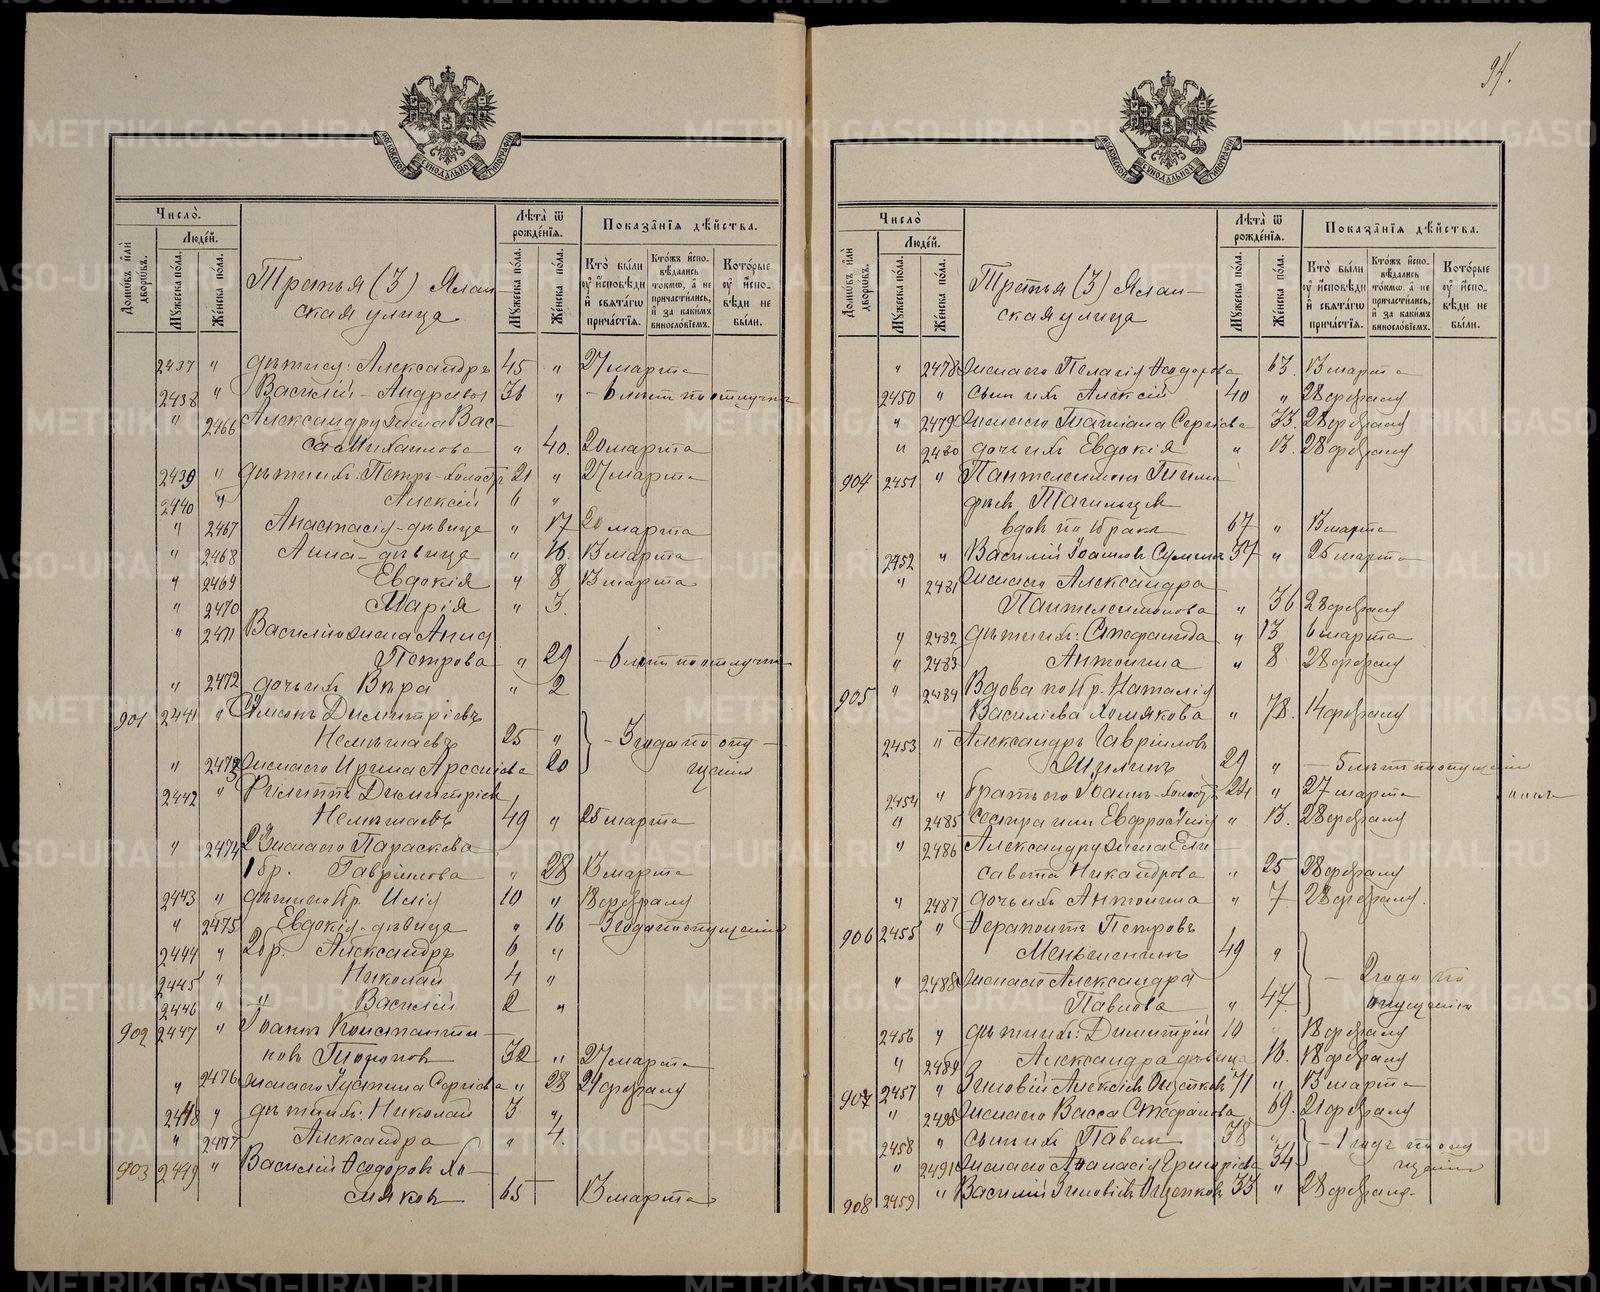 94.
МОСКОВСКОЙ СѴНОДАЛЬНОЙ ТИПОГРАФІИ
Число̀.
Домѡвъ и҆лѝ дворѡвъ.
Люде́й.
Мꙋжеска по́ла.
Же́нска по́ла.
Третья (3) Ялан-
ская улица
Лѣта̀ ѿ рожде́нїѧ.
Мꙋжеска по́ла.
Же́нска по́ла.
Показа̑нїѧ дѣ́йства.
Кто̀ бы́ли ᲂу҆ и҆сповѣди и҆ свѧта́гѡ прича́стїѧ.
Кто́жъ и҆спо-вѣдались то́кмѡ, а҆ не причастились, и҆ за каки́мъ виносло́вїемъ.
Кото́рые ᲂу҆ и҆спо-вѣди не бы́ли.
2437 " дѣти су: Александръ 45 " 27 марта
2438 " Василій - Андреевы 36 " - 6 лѣтъ по отлучкѣ
" 2466 Александру жена Вас-
са Михаилова " 40. 20 марта
2439 " дѣти ихъ: Петръ - холостъ 21 " 27 марта
2440 " Алексій 6 "
" 2467 Анастасія - дѣвица " 17 20 марта
" 2468 Анна - дѣвица " 16. 13 марта
" 2469 Евдокія " 8 13 марта
" 2470 Марія " 3.
" 2471 Василію жена Анна
Петрова " 29 - 6 лѣтъ по отлучкѣ
" 2472 дочь ихъ Вѣра " 2
901 2441 " Симонъ Димитріевъ
Немѣшаевъ 25 " } - 3 года по опу-
" 2473 жена его Ирина Арсеніева 20 щенію
2442 " Филиппъ Димитріевъ
Немѣшаевъ 49 " 25 марта
" 2474 2я жена его Параскева
1 бр. Гавріилова " 28 13 марта
2443 " дѣти его бр. Илія 10 " 18 февраля
" 2475 Евдокія - дѣвица " 16 - 3 года по опущенію
2444 " 2 бр. Александръ 6 "
2445 " Николай 4 "
2446 " " Василій 2 "
902 2447 " Іоаннъ Константи-
новъ Топорковъ 32 " 27 марта
" 2476 жена его Іустина Сергіева " 28 21 февраля
2448 " дѣти ихъ: Николай 3 "
" 2477 Александра " 4.
903 2449 " Василій Ѳеодоровъ Хо-
мяковъ 65 13 марта
Число̀
Домѡвъ и҆лѝ дворѡвъ.
Люде́й.
Мꙋжеска по́ла.
Же́нска по́ла.
Третья (3) Ялан-
ская улица
Лѣта̀ ѿ рожде́нїѧ.
Мꙋжеска по́ла.
Же́нска по́ла.
Показа̑нїѧ дѣ́йства.
Кто̀ бы́ли ᲂу҆ и҆сповѣди и҆ свѧта́гѡ прича́стїѧ.
Кто́жъ и҆спо-вѣдались то́кмѡ, а҆ не причастились, и҆ за каки́мъ виносло́вїемъ.
Кото́рые ᲂу҆ и҆спо-вѣди не бы́ли.
" 2478 жена его Пелагія Ѳеодорова 63. 13 марта
2450 " сынъ ихъ Алексій 40 " 28 февраля
" 2479 жена его Татіана Сергіева 33. 28 февраля
" 2480 дочь ихъ Евдокія " 13. 28 февраля
904 2451 " Пантелеимонъ
Тагильцев
вдовъ по бракѣ 67 " 13 марта
2452 " Василій Іоанновъ 37 " 25 марта
" 2481 жена его Александра
Пантелеимонова " 36 28 февраля
" 2482 дѣти ихъ: Стефанида " 13 6 марта
" 2483 Антонина " 8 28 февраля
905 " 2484 Вдова по бр. Наталія
Василіева Хомякова " 78. 14 февраля
2453 " Александръ Гавріиловъ
Шилинъ 29 " - 5 лѣтъ по опущенію
2454 " братъ его Іоаннъ - холостъ 21 " 27 марта
" 2485 сестра ихъ Евфросинія " 13. 28 февраля
" 2486 Александру жена Ели-
савета Никандрова " 25 28 февраля
" 2487 дочь ихъ Антонина " 7 28 февраля.
906 2455 " Ѳерапонтъ Петровъ
Меньшенинъ 49 " } - 2 года по
" 2488 жена его Александра опущенію
Павлова " 47.
2456 " дѣти ихъ: Димитрій 19 " 18 февраля
" 2489 Александра дѣвица 16. 18 февраля
907 2457 " Зиновій Алексіевъ Ощепковъ 71 " 13 марта
" 2490 жена его Васса Стефанова 69. 21 февраля
2458 " сынъ ихъ Павелъ 38 " } - 1 годъ по опу
" 2491 жена его Аѳанасія Григоріева 34 щенію
908 2459 " Василій Зиновіевъ Ощепковъ 33 " 28 февраля.
METRIKI.GASO-URAL.RU